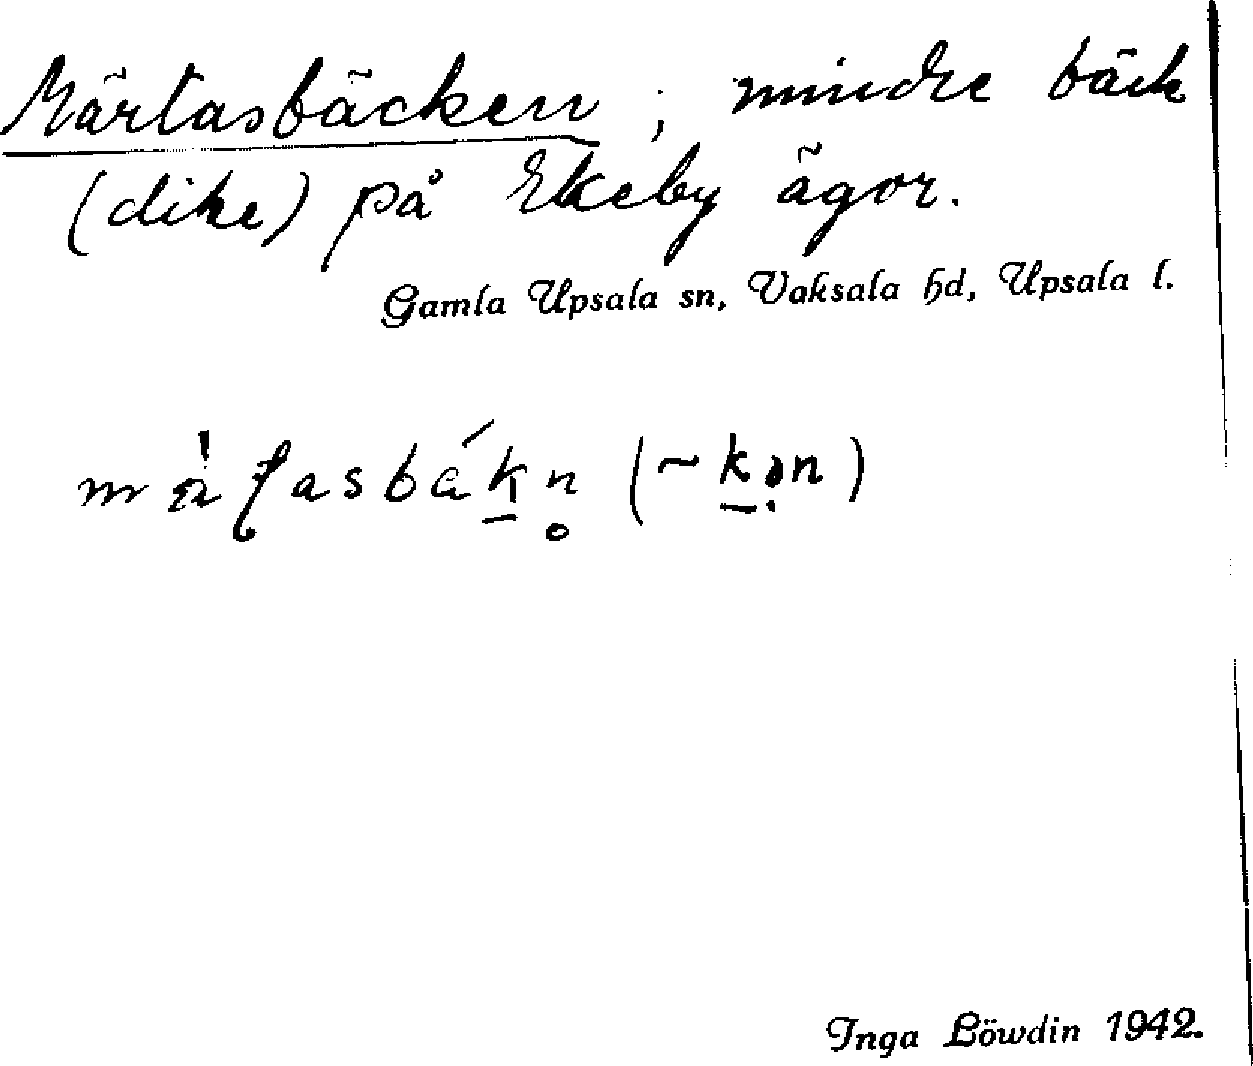 Märtasbäcken ; mindre bäck
(dike) på Ekeby ägor.
Gamla Upsala sn, Vaksala hd, Upsala l.
Inga Löwdin 1942.